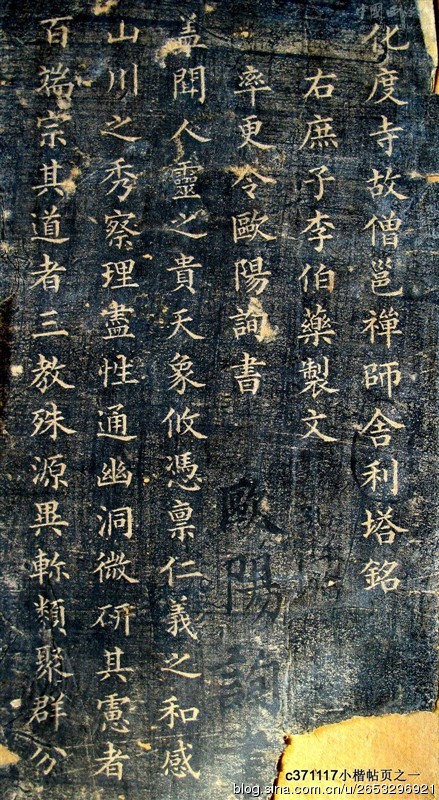 化度寺故僧邕禪師舍利塔銘
右庶子李伯藥製文
率更令歐陽詢書
盖聞人靈之貴天象攸憑禀仁義之和感
山川之秀察理盡性通幽洞微研其慮者
百端宗其道者三教殊源異軫類聚群分
歐陽詢
c371117小楷帖页之一
blog.sina.com.cn/u/2653296921